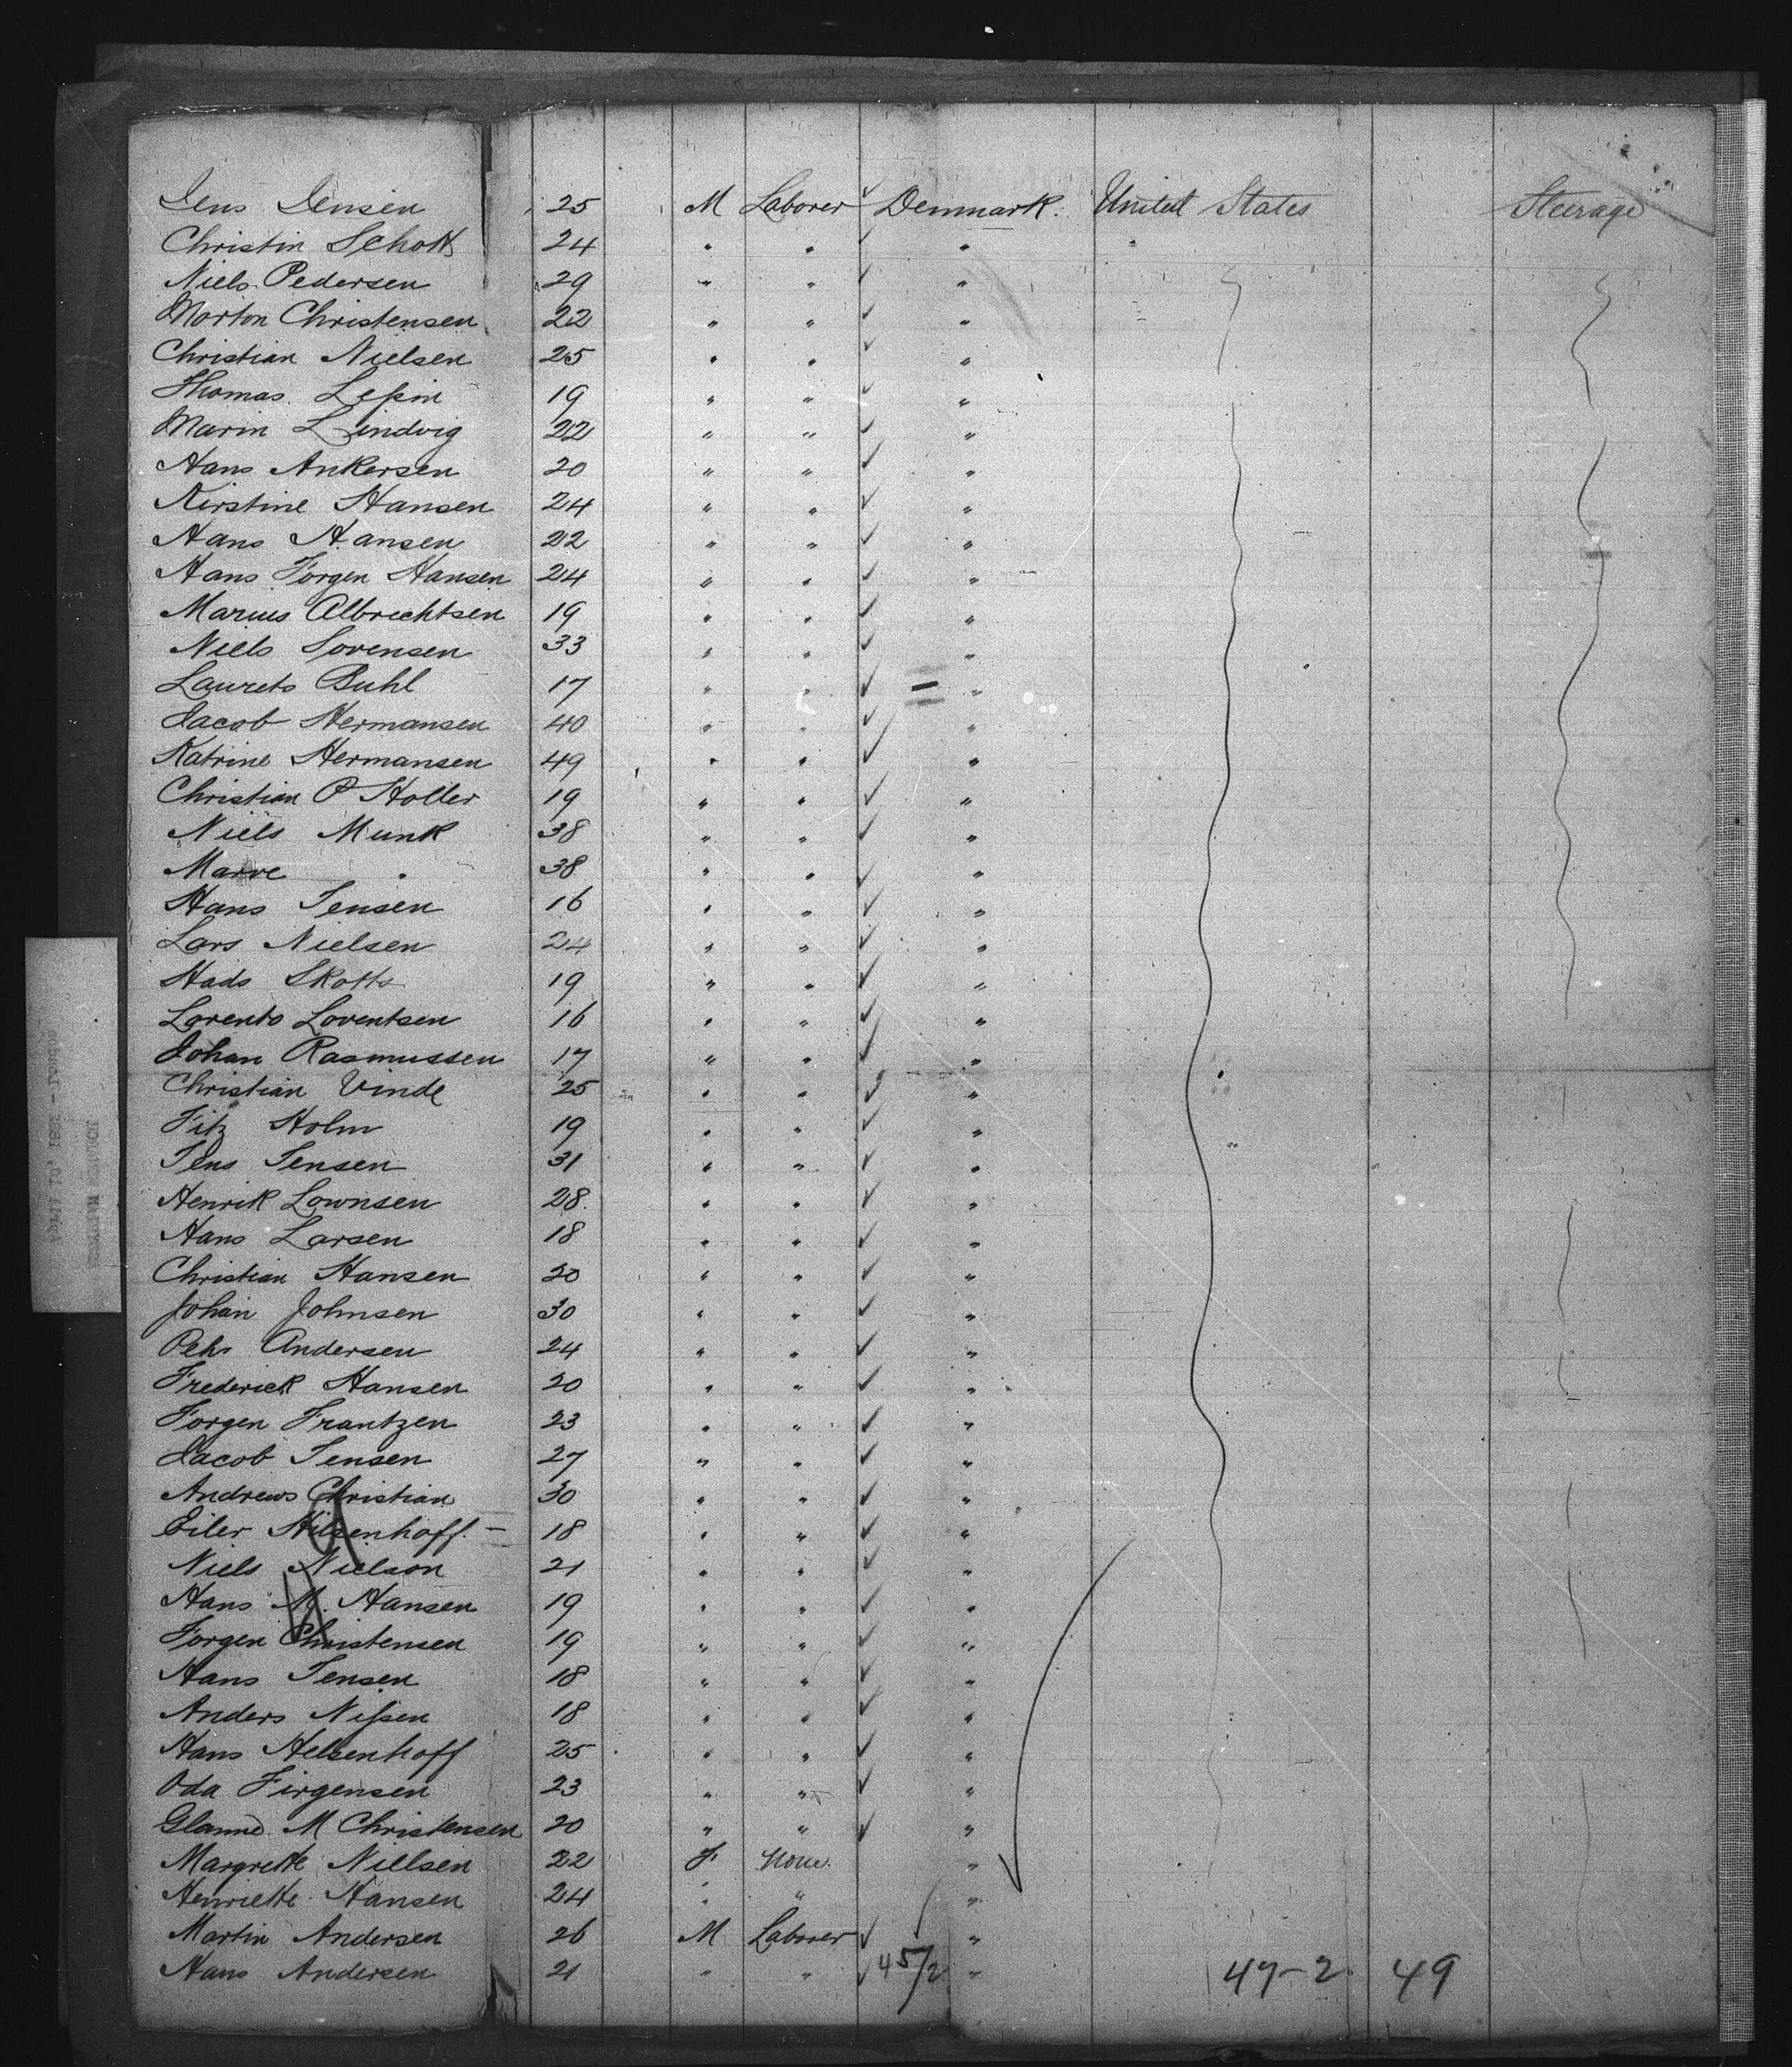 Jens Jensen 25 M Laborer ✓ Denmark. United States Steerage
Christin Schott 24 " " ✓ "
Niels Pedersen 29 " " ✓ "
Morton Christensen 22 " " ✓ "
Christian Nielsen 25 " " ✓ "
Thomas 19 " " ✓ "
Marin Lindvig 22 " " ✓ "
Hans Ankersen 20 " " ✓ "
Kirstine Hansen 24 " " ✓ "
Hans Hansen 22 " " ✓ "
Hans Jorgen Hansen 24 " " ✓ "
Marius Albrechtsen 19 " " ✓ "
Niels Sorensen 33 " " ✓ "
Laurets Buhl 17 " " ✓ — "
Jacob Hermansen 40 " " ✓ "
Katrine Hermansen 49 " " ✓ "
Christian P Holler 19 " " ✓ "
Niels Munk 38 " " ✓ "
Marre " 38 " " ✓ "
Hans Jensen 16 " " ✓ "
Lars Nielsen 24 " " ✓ "
Hads Skotts 19 " " ✓ "
Lorents Lorentsen 16 " " ✓ "
Johan Rasmussen 17 " " ✓ "
Christian Vinde 25 " " ✓ "
Fitz Holm 19 " " ✓ "
Jens Jensen 31 " " ✓ "
Henrik Lownsen 28. " " ✓ "
Hans Larsen 18 " " ✓ "
Christian Hansen 20 " " ✓ "
Johan Johnsen 30 " " ✓ "
Andersen 24 " " ✓ "
Frederick Hansen 20 " " ✓ "
Jorgen Frantzen 23 " " ✓ "
Jacob Jensen 27 " " ✓ "
Andrews Christian 30 " " ✓ "
Eiler Hilsenhoff. — 18 " " ✓ "
Niels Nielson 21 " " ✓ "
Hans M. Hansen 19 " " ✓ "
Jorgen Christensen 19 " " ✓ "
Hans Jensen 18 " " ✓ "
Anders Nissen 18 " " ✓ "
Hans Helsenhoff 25 " " ✓ "
Oda Firgensen 23 " " ✓ "
M Christensen 20 " " ✓ "
Margrette Nielsen 22 F None. "
Henriette Hansen 24 " " "
Martin Andersen 26 M Laborer ✓ "
Hans Andersen 21 " " ✓ 45/2 " 47-2 49